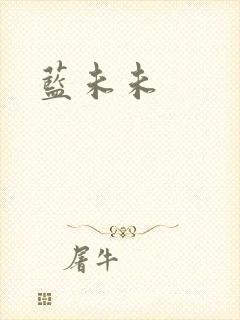 藍未未
屠牛